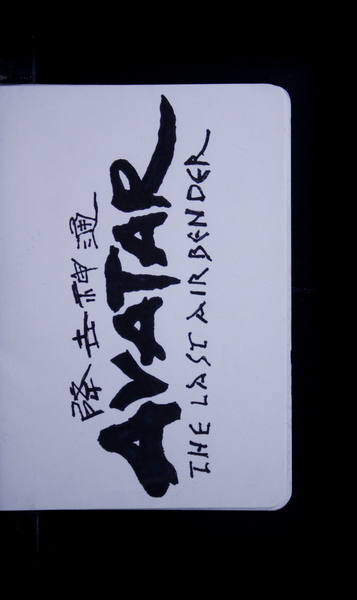 降世神通
AVATAR
THE LAST AIRBENDER